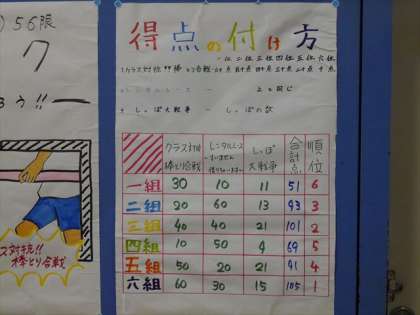 ) 56限
ク
う!!
得点の付け方
一位 二位 三位 四位 五位 六位
クラス対抗 棒とり合戦
上と同じ
しっぽ大戦争 ― しっぽの数
クラス対抗 棒とり合戦 しっぽ大戦争 合計点 順位
一組 30 10 11 51 6
二組 20 60 13 93 3
三組 40 40 21 101 2
四組 10 50 9 69 5
五組 50 20 21 91 4
六組 60 30 15 105 1
ス対抗!!
棒とり合戦